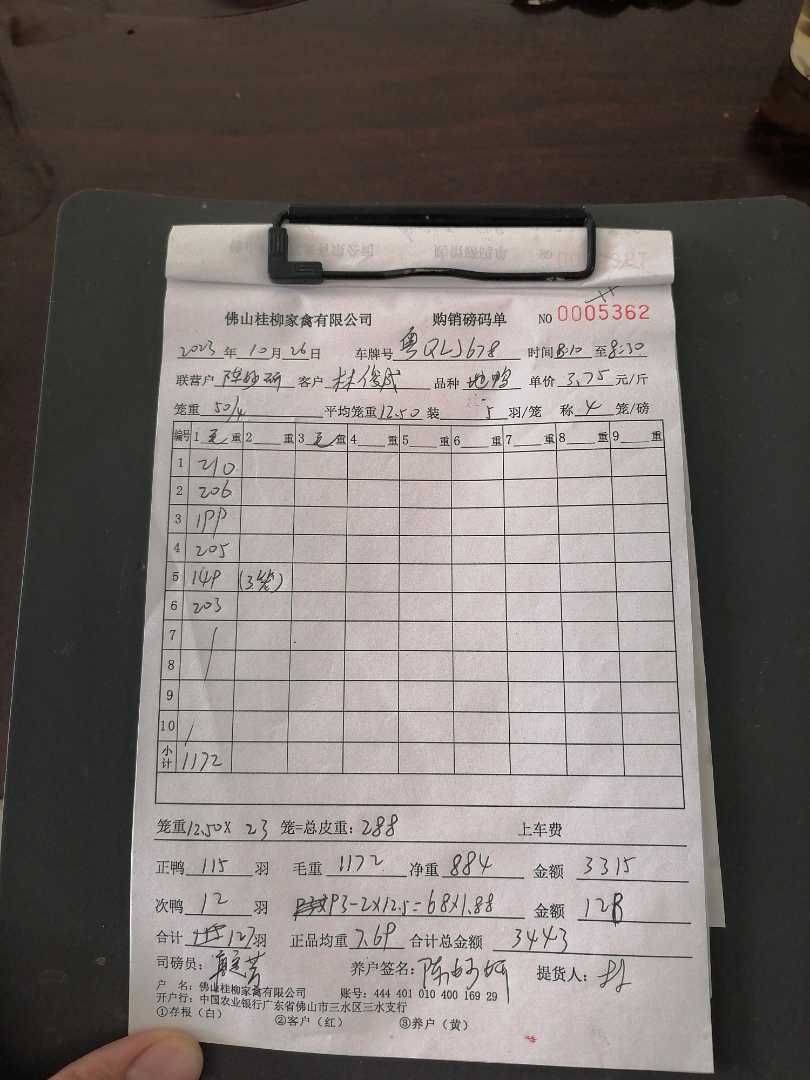 佛山桂柳家禽有限公司 购销磅码单 NO 0005362
2023年10月26日 车牌号粤QLJ678 时间8:10至8:30
联营户 陈好研 客户 林俊成 品种 地鸭 单价 3.75 元/斤
笼重 50/4 平均笼重12.50装 5 羽/笼 称 4 笼/磅
编号 1毛重 2 重 3毛重 4 重 5 重 6 重 7 重 8 重 9 重
1 210
2 206
3 199
4 205
5 149 (3笼)
6 203
7
8
9
10
小计 1172
笼重12.50× 23 笼=总皮重：288 上车费
正鸭 115 羽 毛重 1172 净重 884 金额 3315
次鸭 12 羽 93-2×12.5=68×1.88 金额 128
合计 127羽 正品均重 7.69 合计总金额 3443
司磅员： 养户签名：陈好研 提货人：
户 名：佛山桂柳家禽有限公司 账号：444 401 010 400 169 29
开户行：中国农业银行广东省佛山市三水区三水支行
①存根（白） ②客户（红） ③养户（黄）